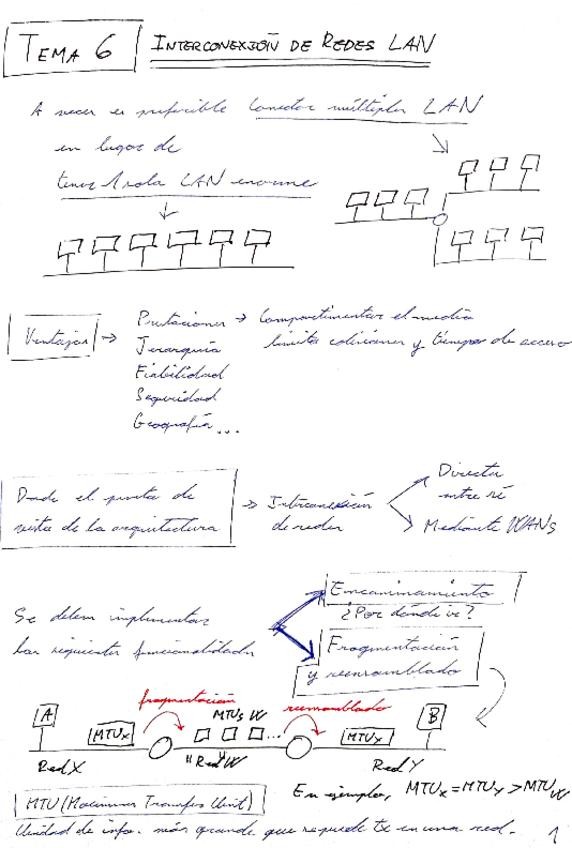 TEMA 6
INTERCONEXIÓN DE REDES LAN
A veces es preferible conectar múltiples LAN
en lugar de
tener 1 sola LAN enorme
Ventajas → Prestaciones → Compartimentar el medio
limita colisiones y tiempos de acceso
Jerarquía
Fiabilidad
Seguridad
Geografía...
Desde el punto de
vista de la arquitectura → Interconexión
de redes
Directa
entre sí
Mediante WANs
Se deben implementar
las siguientes funcionalidades
Encaminamiento
¿Por dónde ve?
Fragmentación
y reensamblado
fragmentación
reensamblado
MTUs W
A
MTUx
...
MTUy
B
Red X
"Red" W
Red Y
En ejemplo, MTUx = MTUy > MTUw
MTU (Maximum Transfer Unit)
Unidad de info. más grande que se puede tx en una red.
1